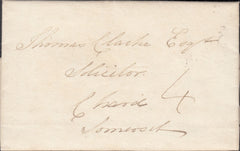 Thomas Clarke Esqr
Solicitor
Chard 4
Somerset